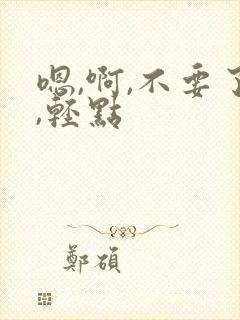 嗯,啊,不要了
,輕點
鄭碩